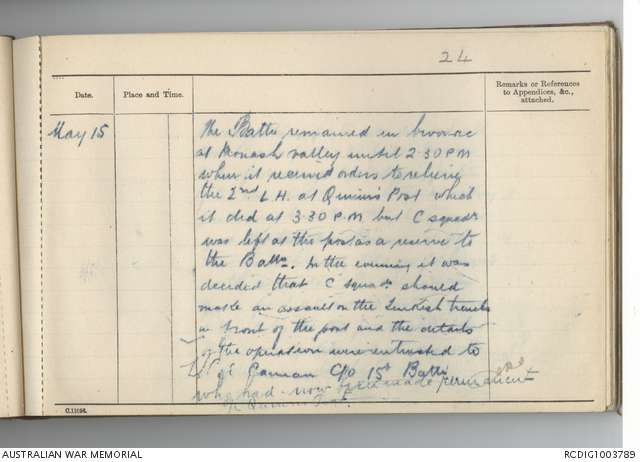 24
Date.
Place and Time.
Remarks or References
to Appendices, &c.,
attached.
May 15
The Battn remained in bivouac
at Monash valley until 2 30 PM
when it received orders to relieve
the 2nd L H. at Quinn's Post which
it did at 3.30 P.M but C squadn
was left at the post as a reserve to
the Battn. In the evening it was
decided that C squadn should
make an assault on the Turkish trenches
in front of the post and the details
of the operation were entrusted to
Lt Col Cannan C/O 15th Battn
who had now been made permanent
of Quinns Post.
C.11694.
AUSTRALIAN WAR MEMORIAL
RCDIG1003789